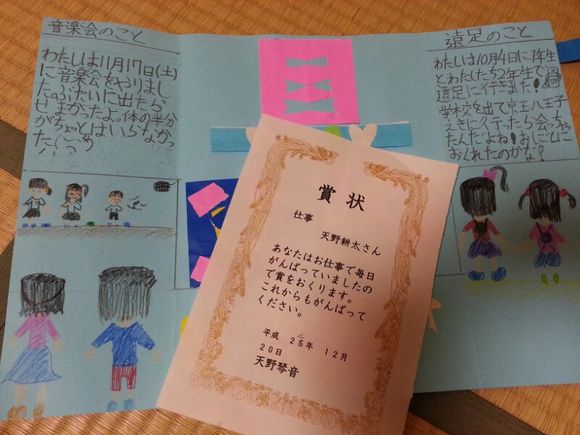 音楽会のこと
わたしは11月17日(土)
に音楽会をやりまし
た。ぶたいに出たら、
せまかったよ。体の半分
がちょっとはいらなかっ
た(・・;)
遠足のこと
わたしは10月4日に1年生
とわたしたち2年生で
遠足に行きました!
学校を出て京王八王子
えきに行ったら会っちゃ
たんだよね!おしごとに
おくれたのかな?
賞状
仕事
天野耕太さん
あなたはお仕事で毎日
がんばっていましたの
で賞をおくります。
これからもがんばって
ください。
平成 25年 12月
20日
天野琴音